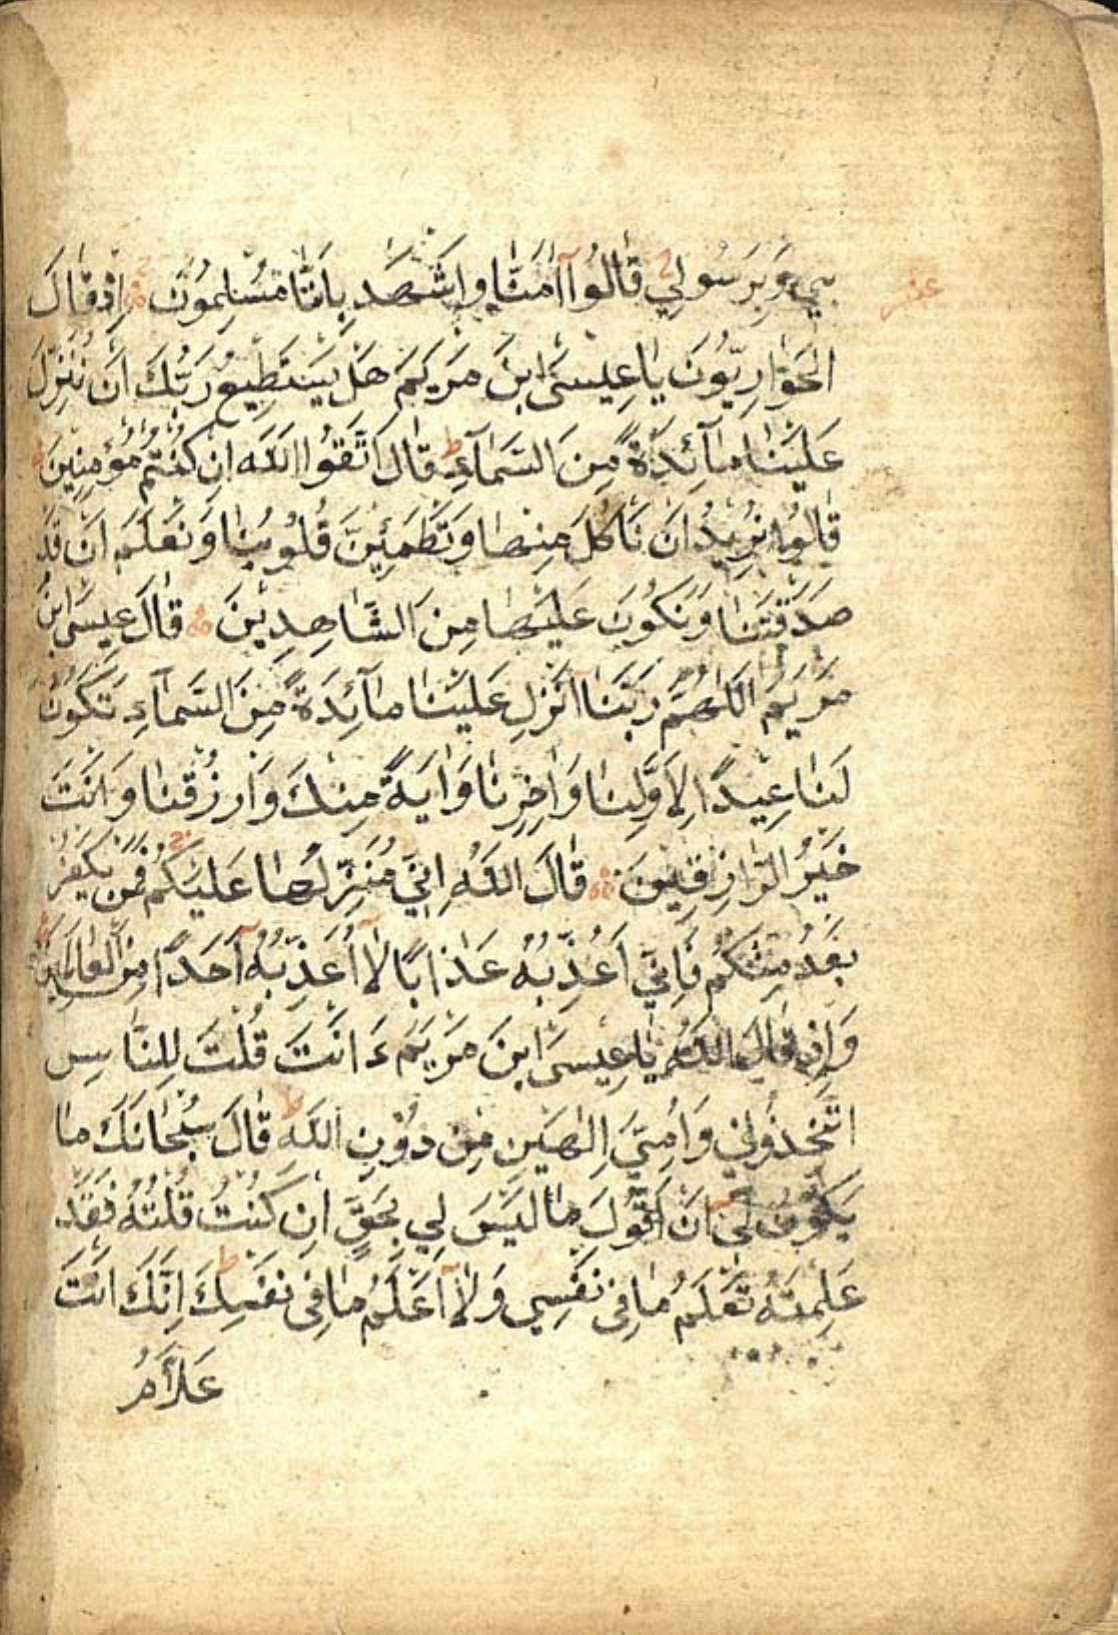 بِي وَبِرَسُولِي قَالُوا آمَنَّا وَاشْهَدْ بِأَنَّنَا مُسْلِمُونَ اِذْ قَالَ
الْحَوَارِيُّونَ يَا عِيسَى ابْنَ مَرْيَمَ هَلْ يَسْتَطِيعُ رَبُّكَ اَنْ يُنَزِّلَ
عَلَيْنَا مَآئِدَةً مِنَ السَّمَآءِ قَالَ اتَّقُوا اللّٰهَ اِنْ كُنْتُمْ مُؤْمِنِينَ
قَالُوا نُرِيدُ اَنْ نَاْكُلَ مِنْهَا وَتَطْمَئِنَّ قُلُوبُنَا وَنَعْلَمَ اَنْ قَدْ
صَدَقْتَنَا وَنَكُونَ عَلَيْهَا مِنَ الشَّاهِدِينَ قَالَ عِيسَى ابْنُ
مَرْيَمَ اللّٰهُمَّ رَبَّنَا اَنْزِلْ عَلَيْنَا مَآئِدَةً مِنَ السَّمَآءِ تَكُونُ
لَنَا عِيْدًا لِاَوَّلِنَا وَاٰخِرِنَا وَاٰيَةً مِنْكَ وَارْزُقْنَا وَاَنْتَ
خَيْرُ الرَّازِقِينَ قَالَ اللّٰهُ اِنِّي مُنَزِّلُهَا عَلَيْكُمْ فَمَنْ يَكْفُرْ
بَعْدُ مِنْكُمْ فَاِنِّي اُعَذِّبُهُ عَذَابًا لَا اُعَذِّبُهُ اَحَدًا مِنَ الْعَالَمِينَ
وَاِذْ قَالَ اللّٰهُ يَا عِيسَى ابْنَ مَرْيَمَ ءَاَنْتَ قُلْتَ لِلنَّاسِ
اتَّخِذُونِي وَاُمِّيَ اِلٰهَيْنِ مِنْ دُوْنِ اللّٰهِ قَالَ سُبْحَانَكَ مَا
يَكُونُ لِي اَنْ اَقُولَ مَا لَيْسَ لِي بِحَقٍّ اِنْ كُنْتُ قُلْتُهُ فَقَدْ
عَلِمْتَهُ تَعْلَمُ مَا فِي نَفْسِي وَلَا اَعْلَمُ مَا فِي نَفْسِكَ اِنَّكَ اَنْتَ
عَلَّامُ